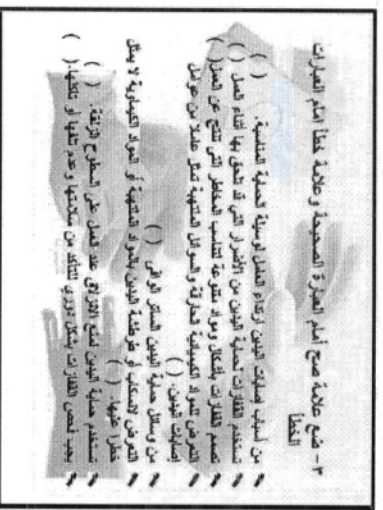 ٣ – ضع علامة صح أمام العبارة الصحيحة وعلامة خطأ امام العبارات
الخطأ
من أسباب إصابات اليدين ارتداء العامل لوسيلة الحماية المناسبة. ( )
تستخدم القفازات لحماية اليدين من الأضرار التي قد تلحق بها أثناء العمل ( )
تصمم القفازات بأشكال ومواد متنوعة لتناسب المخاطر التي تنتج عن العمل( )
التعرض للمواد الكيميائية الحارقة والسوائل الملتهبة تمثل عاملا من عوامل
إصابات اليدين. ( )
من وسائل حماية اليدين الساتر الواقي ( )
التعرض لانسكاب أو طرطشة اليدين بالمواد الملتهبة أو المواد الكيماوية لا يمثل
خطرا عليها. ( )
تستخدم حماية اليدين لمنع الانزلاق عند العمل على السطوح الزلقة. ( )
يجب فحص القفازات بشكل دوري للتأكد من سلامتها وعدم تلفها أو تآكلها.( )